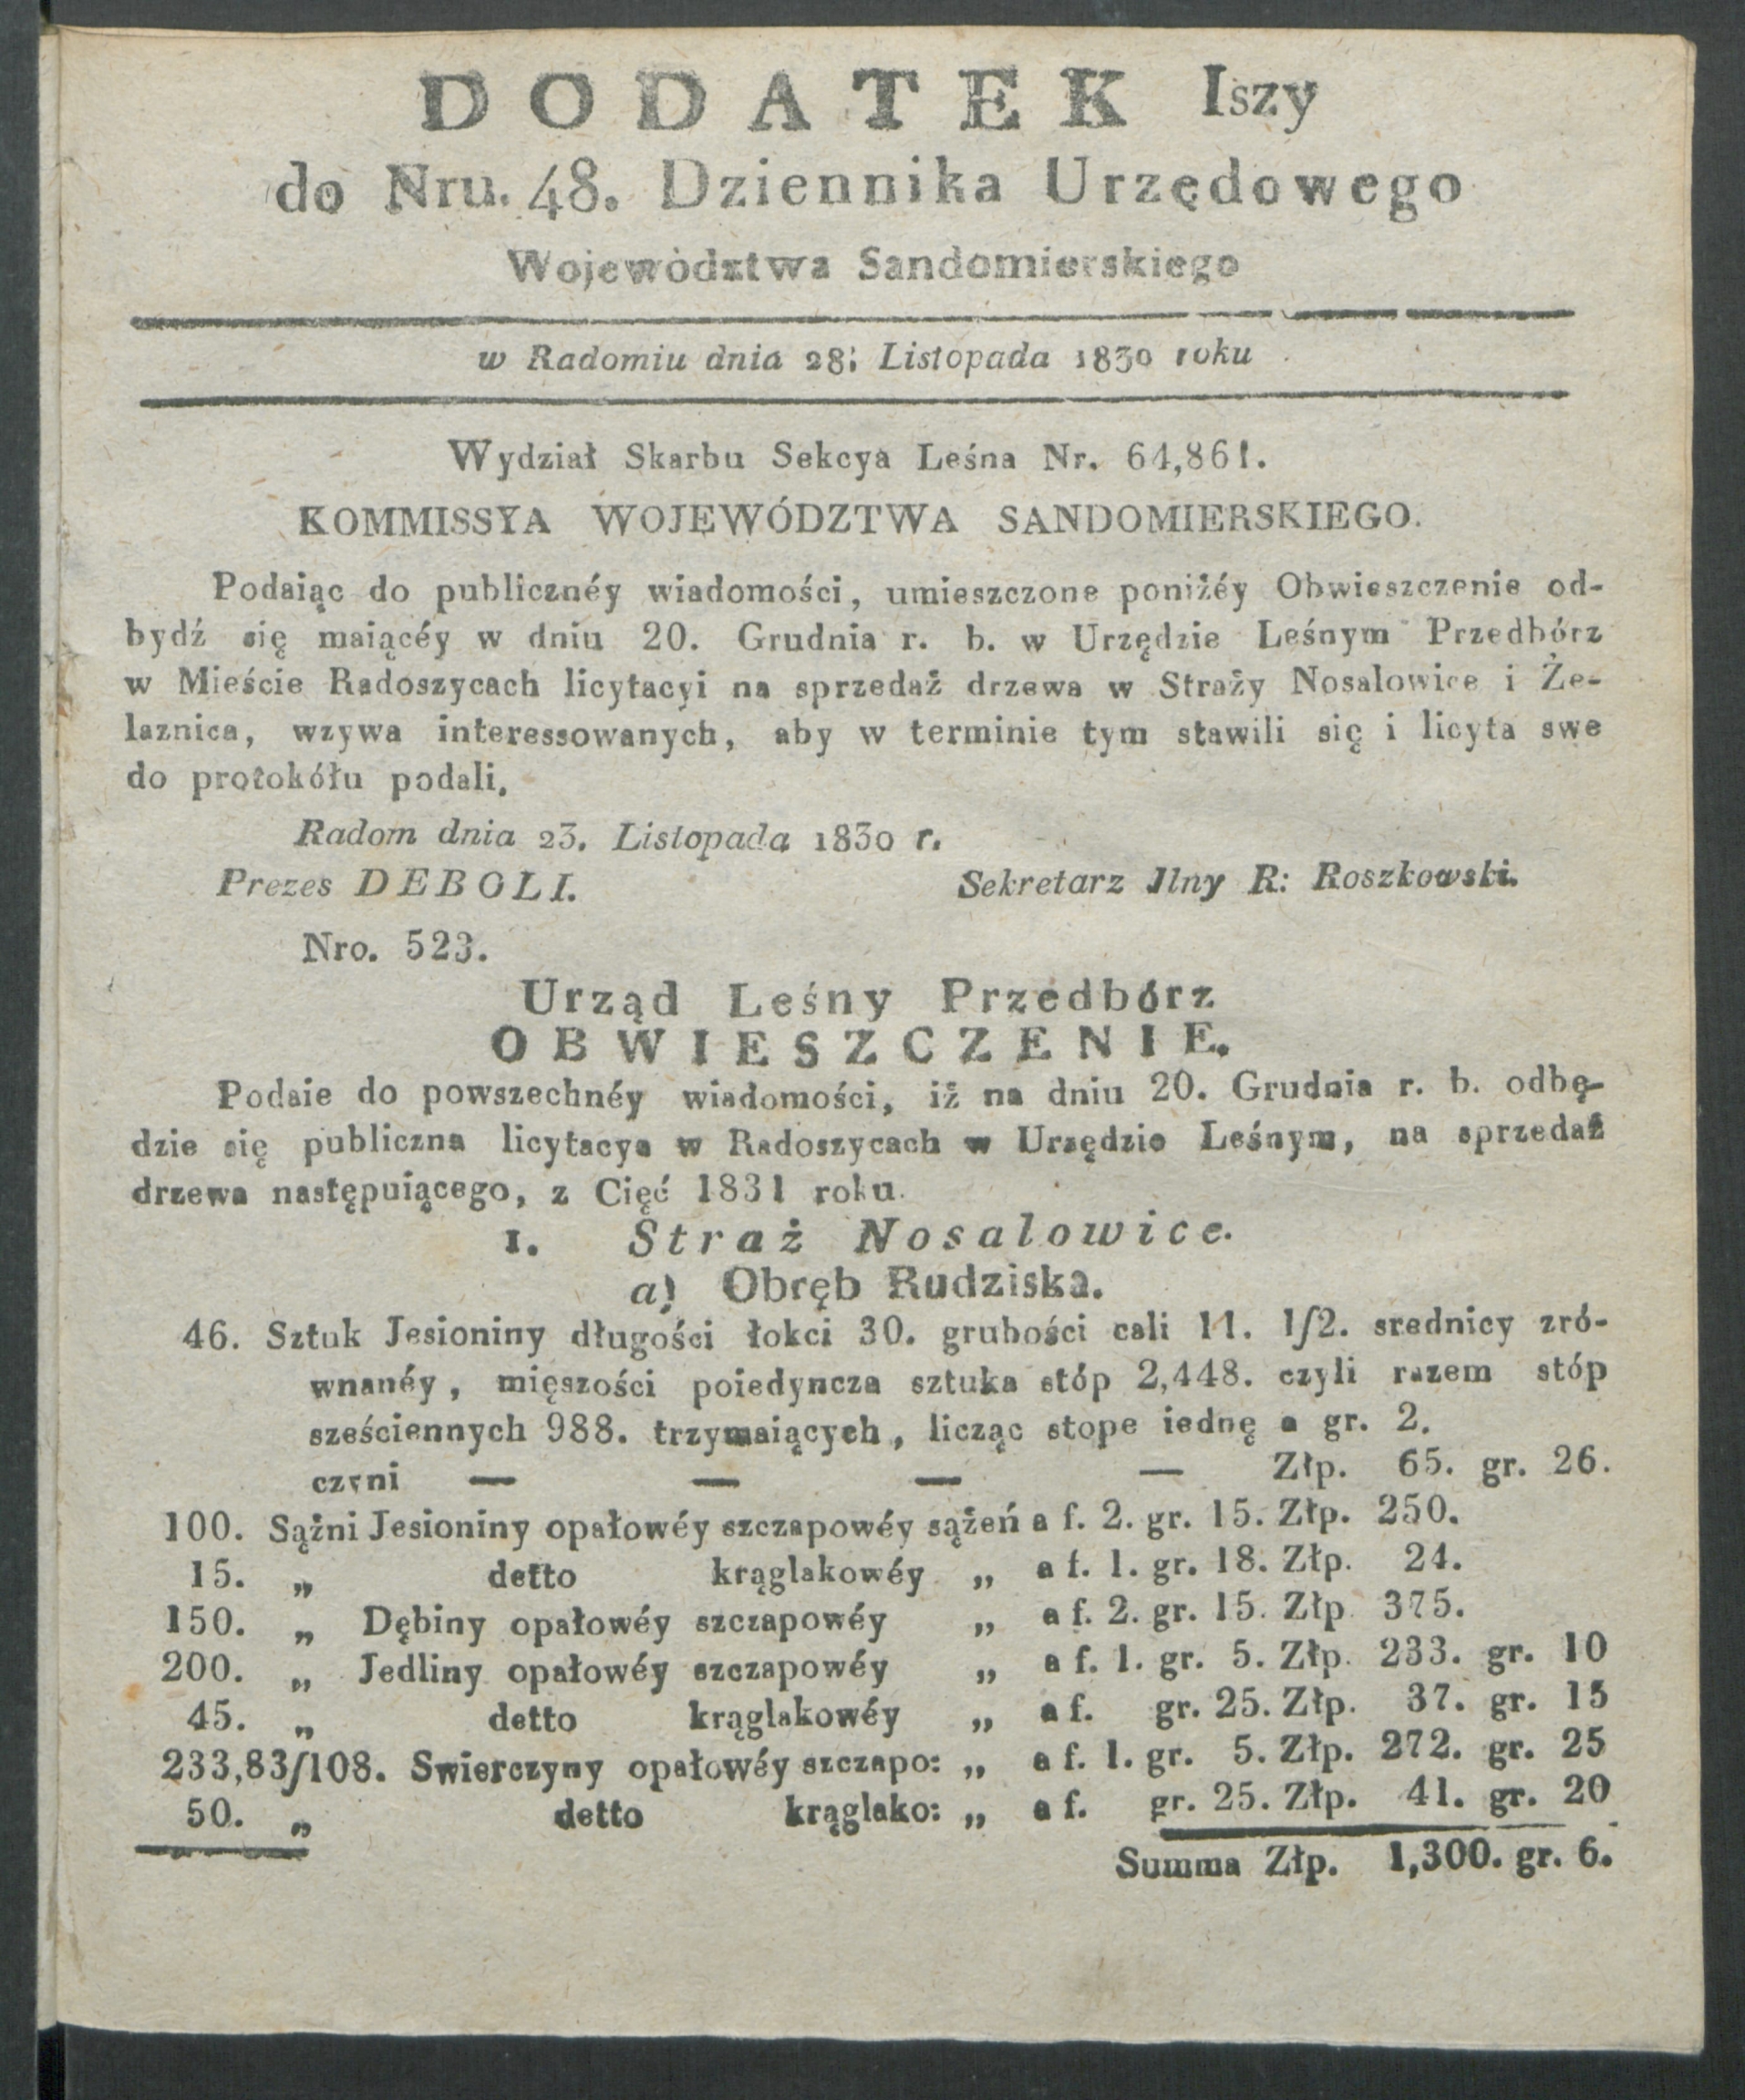 DODATEK Iszy
do Nru. 48. Dziennika Urzędowego
Województwa Sandomierskiego
w Radomiu dnia 28; Listopada 1830 roku
Wydział Skarbu Sekcya Leśna Nr. 64,861.
KOMMISSYA WOJEWÓDZTWA SANDOMIERSKIEGO.
Podaiąc do publicznéy wiadomości, umieszczone poniżéy Obwieszczenie od-
bydź się maiącéy w dniu 20. Grudnia r. b. w Urzędzie Leśnym Przedbórz
w Mieście Radoszycach licytacyi na sprzedaż drzewa w Straży Nosalowice i Że-
laznica, wzywa interessowanych, aby w terminie tym stawili się i licyta swe
do protokółu podali.
Radom dnia 23. Listopada 1830 r.
Prezes DEBOLI. Sekretarz Jlny R: Roszkowski.
Nro. 523.
Urząd Leśny Przedbórz
OBWIESZCZENIE.
Podaie do powszechnéy wiadomości, iż na dniu 20. Grudnia r. b. odbę-
dzie się publiczna licytacya w Radoszycach w Urzędzie Leśnym, na sprzedaż
drzewa następuiącego, z Cięć 1831 roku.
1. Straż Nosalowice.
a) Obręb Rudziska.
46. Sztuk Jesioniny długości łokci 30. grubości cali 11. 1/2. srednicy zró-
wnanéy, mięszości poiedyncza sztuka stóp 2,448. czyli razem stóp
sześciennych 988. trzymaiących, licząc stope iednę a gr. 2.
czyni — — — — Złp. 65. gr. 26.
100. Sążni Jesioniny opałowéy szczapowéy sążeń a f. 2. gr. 15. Złp. 250.
15. „ detto krąglakowéy „ a f. 1. gr. 18. Złp. 24.
150. „ Dębiny opałowéy szczapowéy „ a f. 2. gr. 15. Złp. 375.
200. „ Jedliny opałowéy szczapowéy „ a f. 1. gr. 5. Złp. 233. gr. 10
45. „ detto krąglakowéy „ a f. gr. 25. Złp. 37. gr. 15
233,83/108. Swierczyny opałowéy szczapo: „ a f. 1. gr. 5. Złp. 272. gr. 25
50. „ detto krąglako: „ a f. gr. 25. Złp. 41. gr. 20
Summa Złp. 1,300. gr. 6.